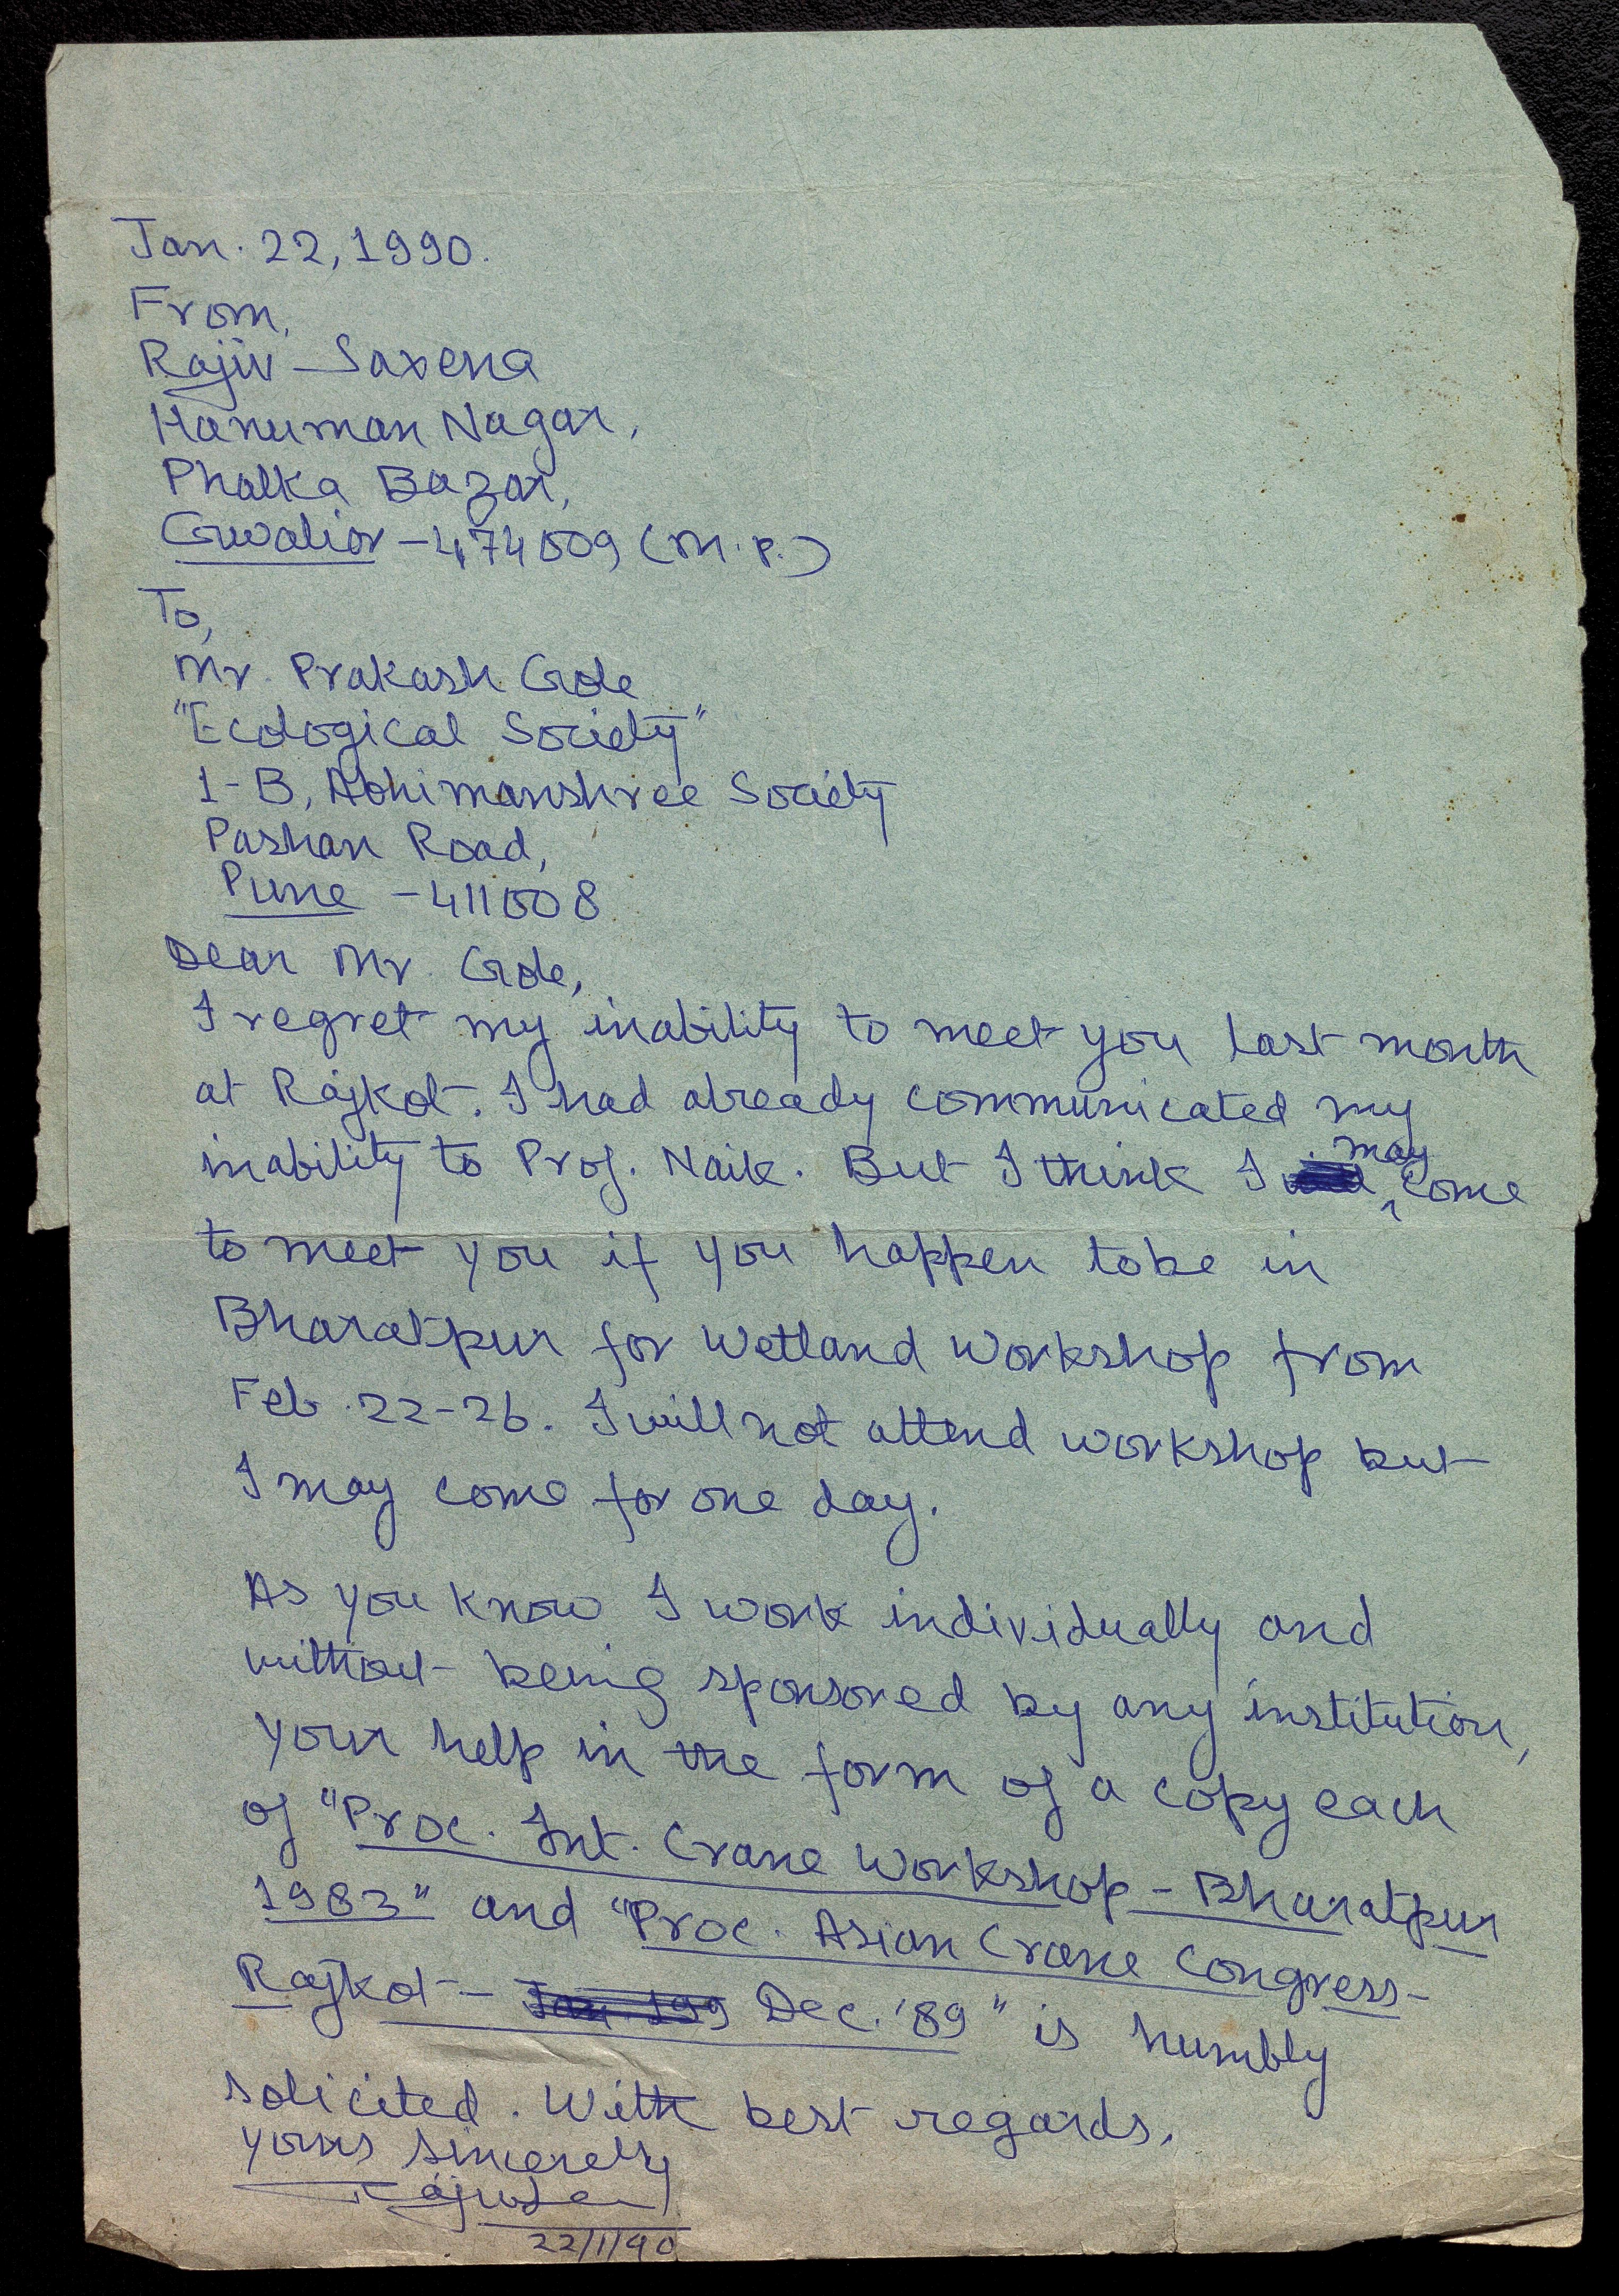 Jan. 22, 1990.
From,
Rajiv Saxena
Hanuman Nagar,
Phalka Bazar,
Gwalior - 474009 (M.P.)
To,
Mr. Prakash Gole
"Ecological Society"
1-B, Abhimanshree Society
Pashan Road,
Pune - 411008
Dear Mr. Gole,
I regret my inability to meet you last month
at Rajkot. I had already communicated my
inability to Prof. Naik. But I think I may come
to meet you if you happen to be in
Bharatpur for Wetland Workshop from
Feb. 22-26. I will not attend workshop but
I may come for one day.
As you know I work individually and
without being sponsored by any institution,
your help in the form of a copy each
of "Proc. Int. Crane Workshop - Bharatpur
1983" and "Proc. Asian Crane Congress -
Rajkot - Dec. '89" is humbly
solicited. With best regards,
Yours sincerely
22/1/90